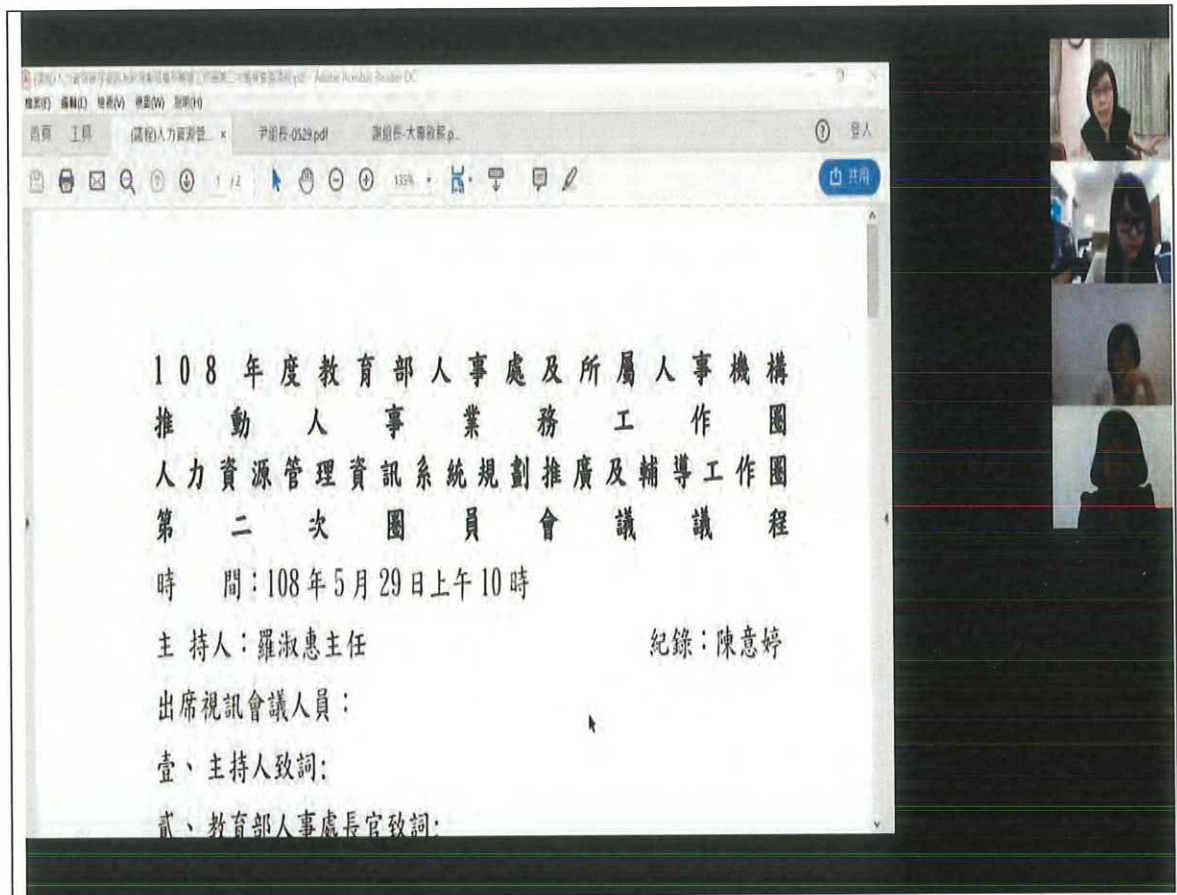 Adobe Acrobat Reader DC
檔案(F) 編輯(E) 檢視(V) 視窗(W) 說明(H)
首頁 工具 (議程)人力資源管... × 尹組長-0529.pdf 謝組長-大專教務.p... 登入
1 / 2 135% 共用
108年度教育部人事處及所屬人事機構
推動人事業務工作圈
人力資源管理資訊系統規劃推廣及輔導工作圈
第二次圈員會議議程
時 間：108年5月29日上午10時
主 持人：羅淑惠主任 紀錄：陳意婷
出席視訊會議人員：
壹、主持人致詞:
貳、教育部人事處長官致詞: